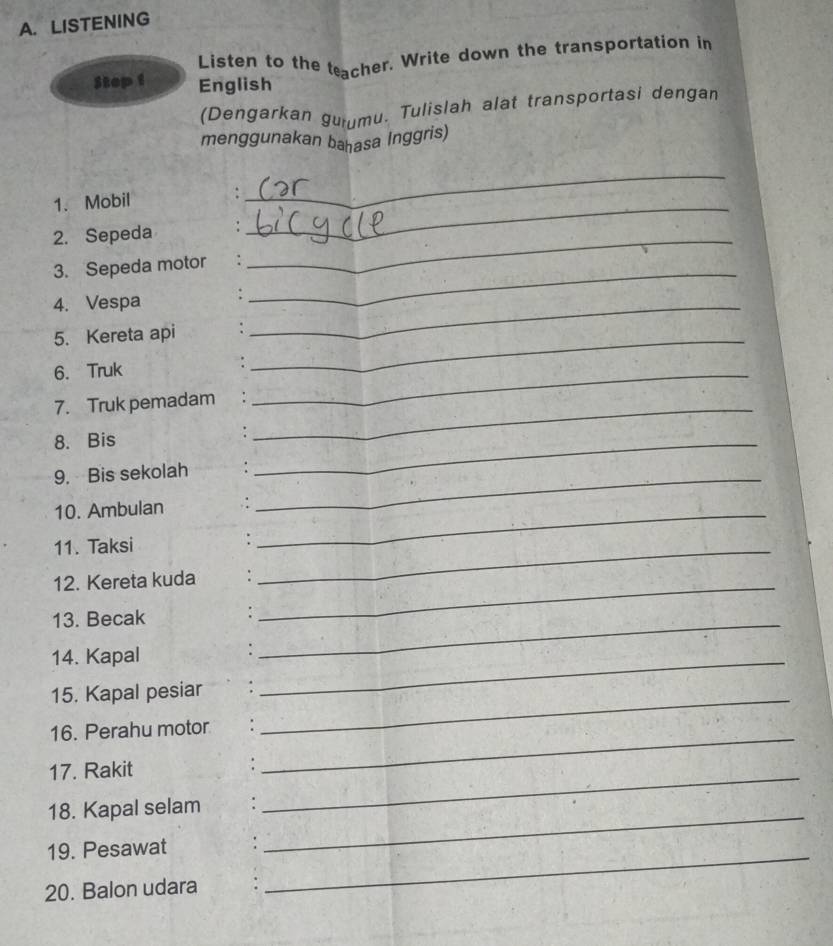 A. LISTENING
Step 1
Listen to the teacher. Write down the transportation in
English
(Dengarkan gurumu. Tulislah alat transportasi dengan
menggunakan bahasa Inggris)
1. Mobil : Car
2. Sepeda : bicycle
3. Sepeda motor :
4. Vespa :
5. Kereta api :
6. Truk :
7. Truk pemadam :
8. Bis :
9. Bis sekolah :
10. Ambulan :
11. Taksi :
12. Kereta kuda :
13. Becak :
14. Kapal :
15. Kapal pesiar :
16. Perahu motor :
17. Rakit :
18. Kapal selam :
19. Pesawat :
20. Balon udara :